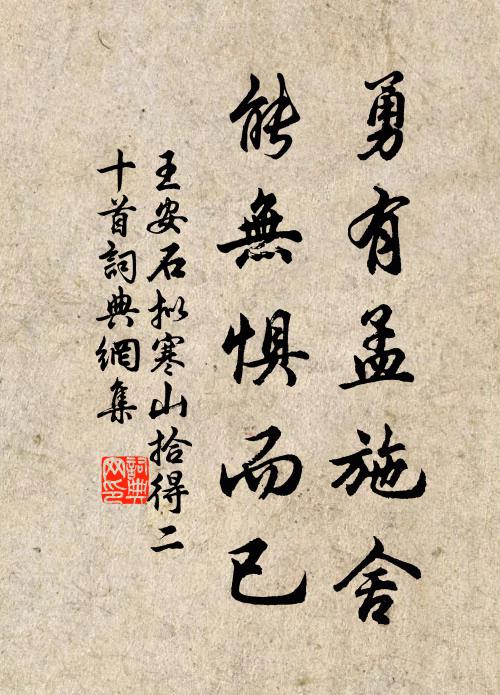 勇有孟施舍
能無惧而已
王安石拟寒山拾得二
十首詞典網集
詞典
网印